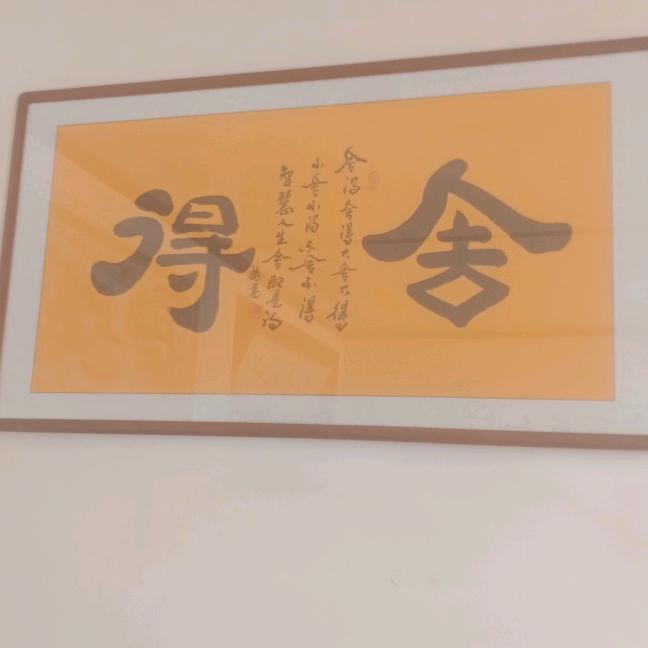 舍
舍得舍得大舍大得
小舍小得不舍不得
智慧人生舍即是得
得